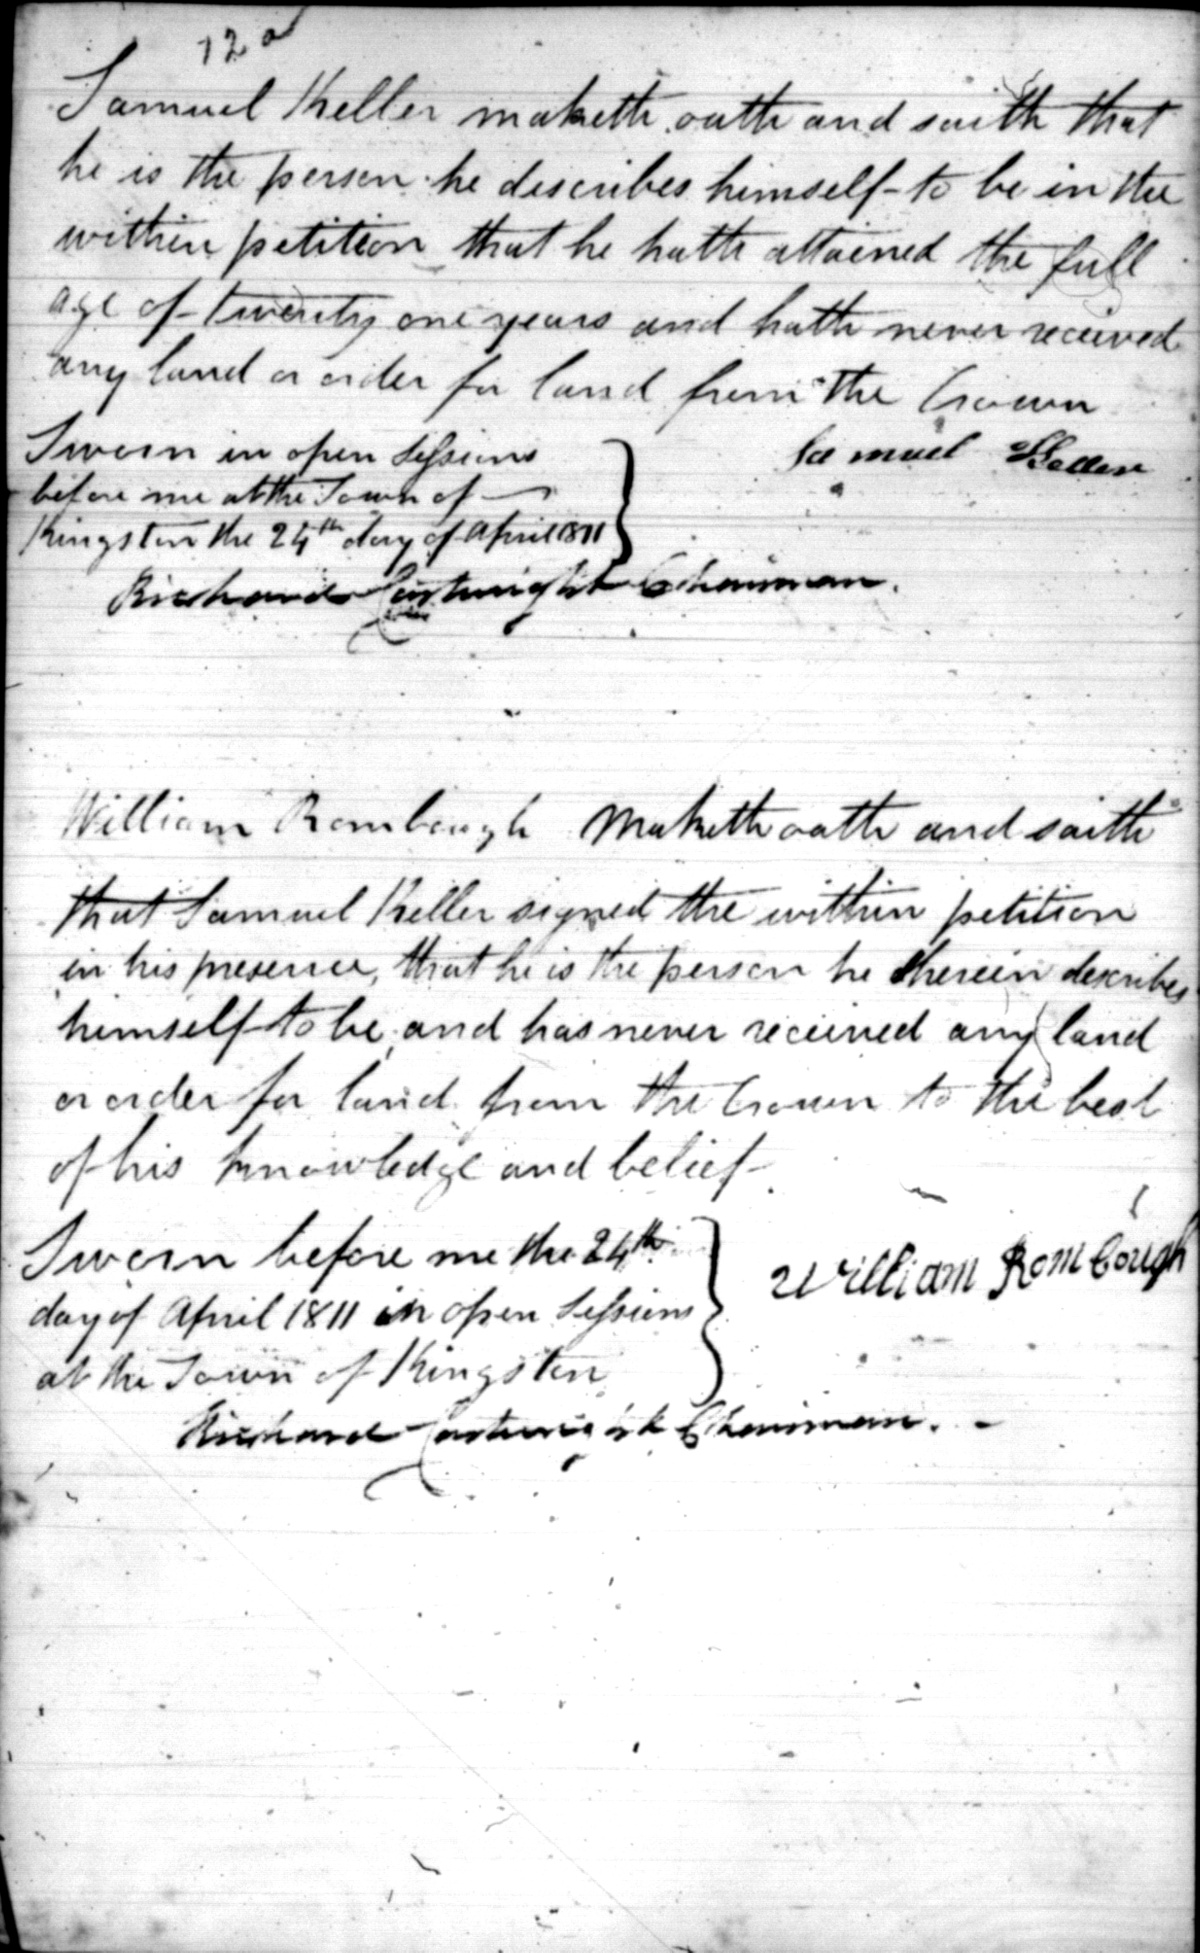 12a
Samuel Keller maketh oath and saith that
he is the person he describes himself to be in the
within petition that he hath attained the full
age of twenty one years and hath never received
any land or order for land from the Crown
Samuel
Sworn in open Sessions
before me at the Town of
Kingston the 24th day of April 1811
Richard Cartwright Chairman.
William Rombough maketh oath and saith
that Samuel Keller signed the within petition
in his presence, that he is the person he therein describes
himself to be, and has never received any land
or order for land from the Crown to the best
of his knowledge and belief.
Sworn before me the 24th
day of April 1811 in open Sessions
at the Town of Kingston
William Rombough
Richard Cartwright Chairman.